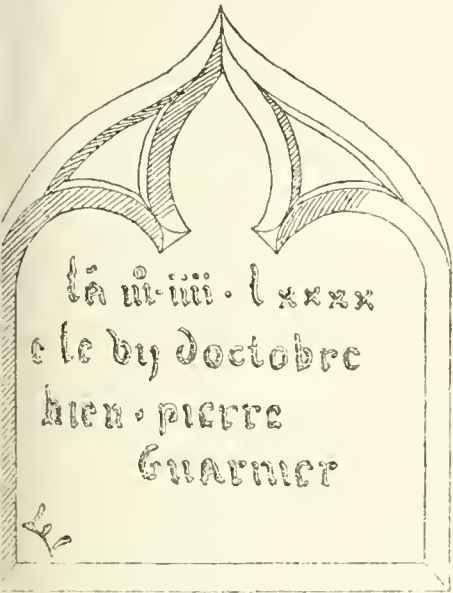 lā m̊·iiii· l xxxx
e le vij doctobre
hien · pierre
Guarnier